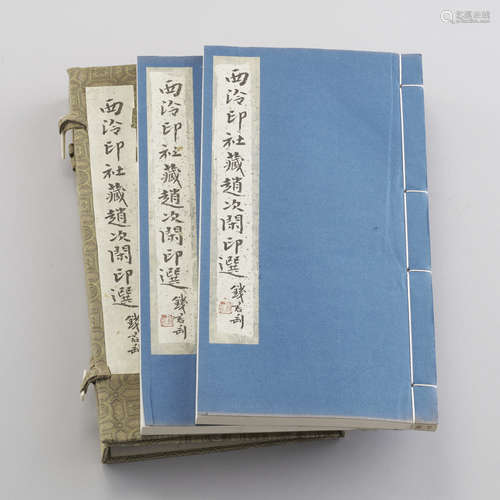 西泠印社藏趙次閑印選
錢君匋
西泠印社藏趙次閑印選
錢君匋
西泠印社藏趙次閑印選
錢君匋